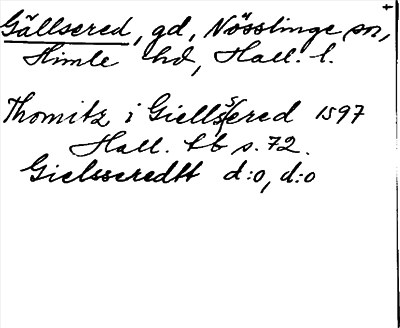 Gällsered, gd, Nösslinge sn,
Himle hd, Hall. l.
Thomitz i Giellssered 1597
Hall. tb s. 72.
Gielsseredtt d:o, d:o